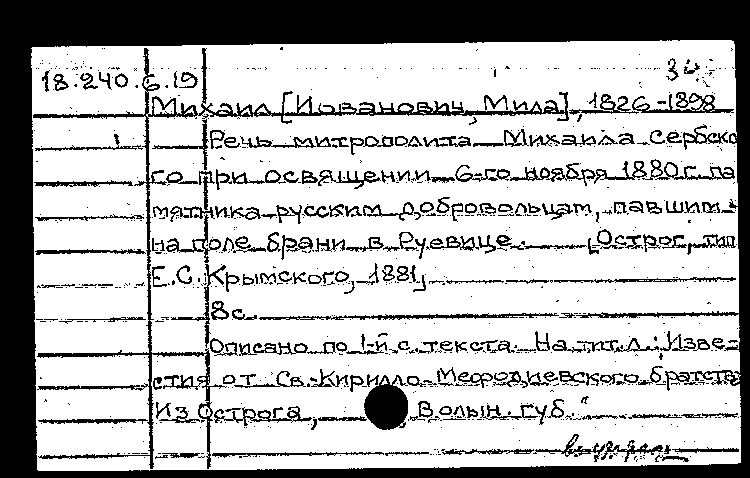 18.240.6.19
34
Михаил [Иованович, Мила], 1826-1898
Речь митрополита Михаила Сербско
го при освящении 6-го ноября 1880 г. па
мятника русским добровольцам, павшим
на поле брани в Руевице. [Острог, тип
Е.С. Крымского, 1881]
8 с.
Описано по 1-й с. текста. На тит. л.: Изве-
стия от Св.-Кирилло-Мефодиевского братства
Из Острога, Волын. губ."